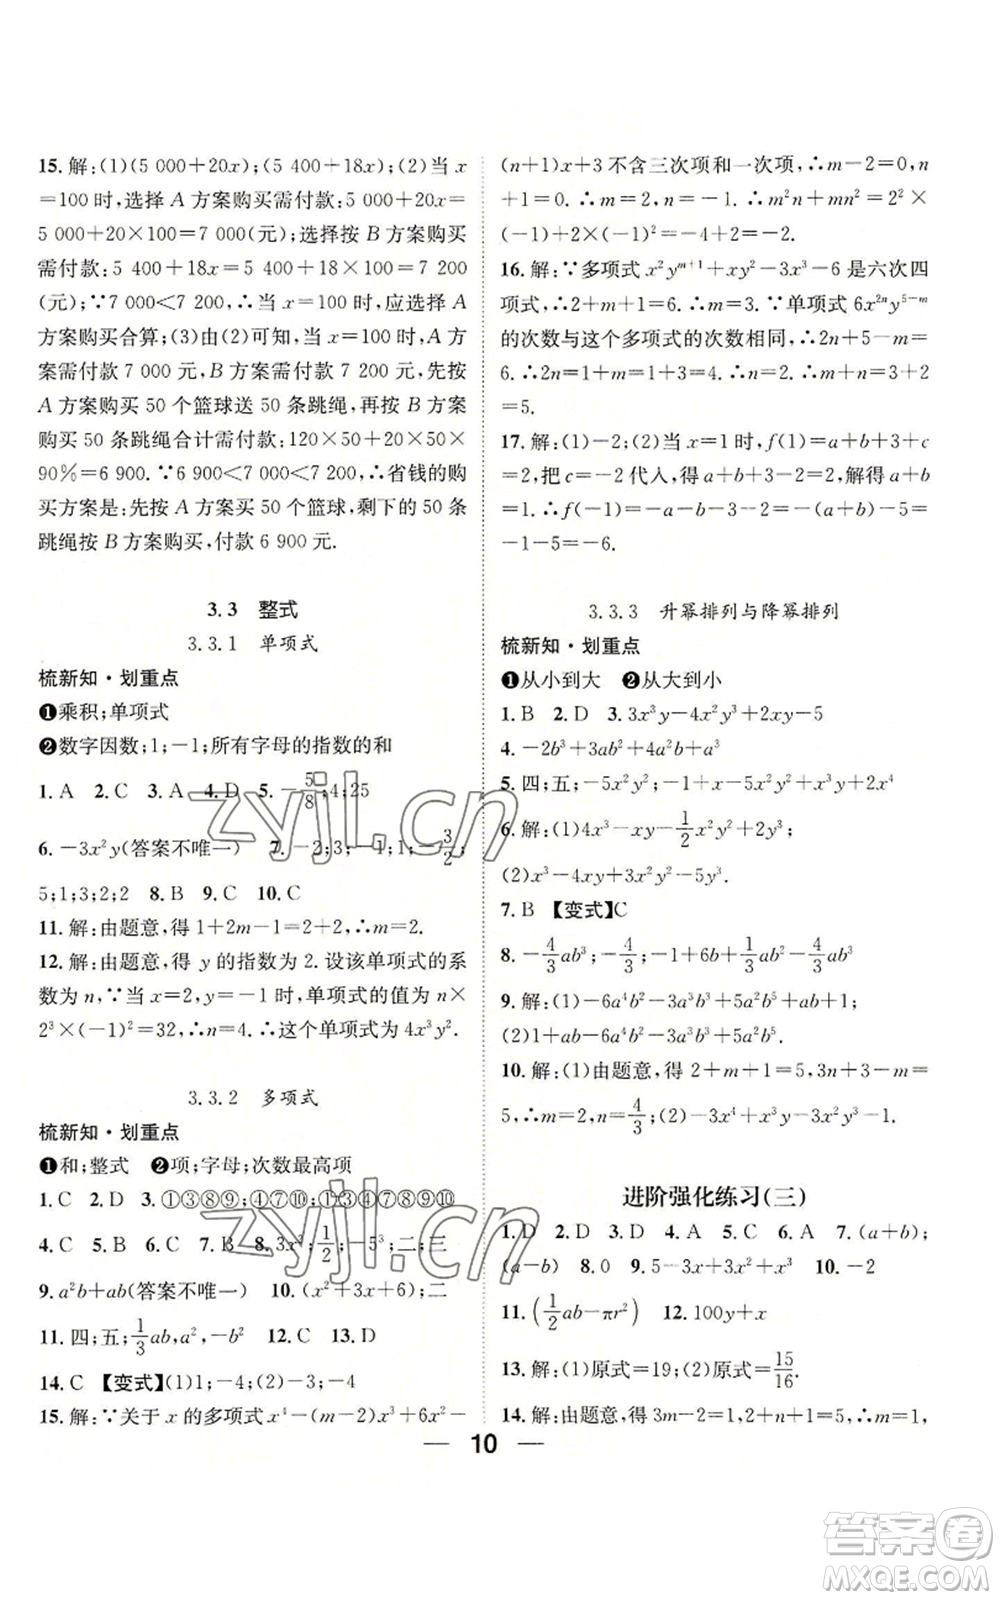 15. 解:(1)(5 000+20x);(5 400+18x);(2)当
x=100 时,选择 A 方案购买需付款:5 000+20x=
5 000+20×100=7 000(元);选择按 B 方案购买
需付款:5 400+18x=5 400+18×100=7 200
(元);∵7 000<7 200,∴当 x=100 时,应选择 A
方案购买合算;(3)由(2)可知,当 x=100 时,A 方
案需付款 7 000 元,B 方案需付款 7 200 元,先按
A 方案购买 50 个篮球送 50 条跳绳,再按 B 方案
购买 50 条跳绳合计需付款:120×50+20×50×
90%=6 900.∵6 900<7 000<7 200,∴省钱的购
买方案是:先按 A 方案买 50 个篮球,剩下的 50 条
跳绳按 B 方案购买,付款 6 900 元.
3.3 整式
3.3.1 单项式
梳新知·划重点
❶乘积;单项式
❷数字因数;1;-1;所有字母的指数的和
1. A 2. C 3. A 4. D 5. -5/8;4;25
6. -3x²y(答案不唯一) 7. -2;3; 1;1;-3/2;
5;1;3;2;2 8. B 9. C 10. C
11. 解:由题意,得 1+2m-1=2+2,∴m=2.
12. 解:由题意,得 y 的指数为 2.设该单项式的系
数为 n,∵当 x=2,y=-1 时,单项式的值为 n×
2³×(-1)²=32,∴n=4.∴这个单项式为 4x³y².
3.3.2 多项式
梳新知·划重点
❶和;整式 ❷项;字母;次数最高项
1. C 2. D 3. ①③⑧⑨;④⑦⑩;①③④⑦⑧⑨⑩
4. C 5. B 6. C 7. B 8. 3x³;1/2;-5³;二;三
9. a²b+ab(答案不唯一) 10. (x²+3x+6);二
11. 四;五;1/3ab,a²,-b² 12. C 13. D
14. C 【变式】(1)1;-4;(2)-3;-4
15. 解:∵关于 x 的多项式 x⁴-(m-2)x³+6x²-
(n+1)x+3 不含三次项和一次项,∴m-2=0,n
+1=0.∴m=2,n=-1.∴m²n+mn²=2²×
(-1)+2×(-1)²=-4+2=-2.
16. 解:∵多项式 x²yᵐ⁺¹+xy²-3x³-6 是六次四
项式,∴2+m+1=6.∴m=3.∵单项式 6x²ⁿy⁵⁻ᵐ
的次数与这个多项式的次数相同,∴2n+5-m=
6.∴2n=1+m=1+3=4.∴n=2.∴m+n=3+2
=5.
17. 解:(1)-2;(2)当 x=1 时,f(1)=a+b+3+c
=2,把 c=-2 代入,得 a+b+3-2=2,解得 a+b
=1.∴f(-1)=-a-b-3-2=-(a+b)-5=
-1-5=-6.
3.3.3 升幂排列与降幂排列
梳新知·划重点
❶从小到大 ❷从大到小
1. B 2. D 3. 3x³y-4x²y³+2xy-5
4. -2b³+3ab²+4a²b+a³
5. 四;五;-5x²y²;-1+x-5x²y²+2x⁴
6. 解:(1)4x³-xy-1/2x²y²+2y³;
(2)x³-4xy+3x²y²-5y³.
7. B 【变式】C
8. -4/3ab³;-4/3;-1+6b+1/3ab²-4/3ab³
9. 解:(1)-6a⁴b²-3a³b³+5a²b⁵+ab+1;
(2)1+ab-6a⁴b²-3a³b³+5a²b⁵.
10. 解:(1)由题意,得 2+m+1=5,3n+3-m=
5,∴m=2,n=4/3;(2)-3x⁴+xy+2x³y³-1.
进阶强化练习(三)
1. D 2. D 3. C 4. A 5. C 6. A 7. (a+b);
(a-b) 8. 0 9. 5-3x+3x²+x³ 10. -2
11. (1/2ab-πr²) 12. 100y+x
13. 解:(1)原式=19;(2)原式=15/16.
14. 解:由题意,得 3m-1=2,∴m=1,∴n=1,
— 10 —
zyjl.cn
zyjl.cn
答案卷
MXQE.COM